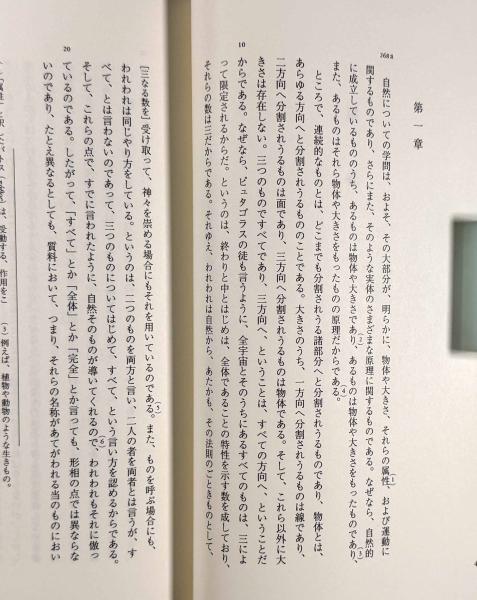 第一章
268a
自然についての学問は、およそ、その大部分が、明らかに、物体や大きさ、それらの属性、および運動に
(1)
関するものであり、さらにまた、そのような実体のさまざまな原理に関するものである。なぜなら、自然的
に成立しているもののうち、あるものは物体や大きさであり、あるものは物体や大きさをもったものであり、
(2)
(3)
また、あるものはそれら物体や大きさをもったものの原理だからである。
(4)
ところで、連続的なものとは、どこまでも分割されうる諸部分へと分割されうるものであり、物体とは、
あらゆる方向へと分割されうるもののことである。大きさのうち、一方向へ分割されうるものは線であり、
二方向へ分割されうるものは面であり、三方向へ分割されうるものは物体である。そして、これら以外に大
10
きさは存在しない。三つのものですべてであり、三方向へ、ということは、すべての方向へ、ということだ
からである。なぜなら、ピュタゴラスの徒も言うように、全宇宙とそのうちにあるすべてのものは、三によ
って限定されるからだ。というのは、終わりと中とはじめは、全体であることの特性を示す数を成しており、
それらの数は三だからである。それゆえ、われわれは自然から、あたかも、その法則のごときものとして、
[三なる数を]受け取って、神々を崇める場合にもそれを用いているのである。また、ものを呼ぶ場合にも、
(5)
われわれは同じやり方をしている。というのは、二つのものを両方と言い、二人の者を両者とは言うが、す
べて、とは言わないのであって、三つのものについてはじめて、すべて、という言い方を認めるからである。
20
そして、これらの点で、すでに言われたように、自然そのものが導いてくれるので、われわれもそれに倣っ
(6)
ているのである。したがって、「すべて」とか「全体」とか「完全」とか言っても、形相の点では異ならな
いのであり、たとえ異なるとしても、質料において、つまり、それらの名称があてがわれる当のものにおい
(3) 例えば、植物や動物のような生きもの。
は、受動する、作用をこ